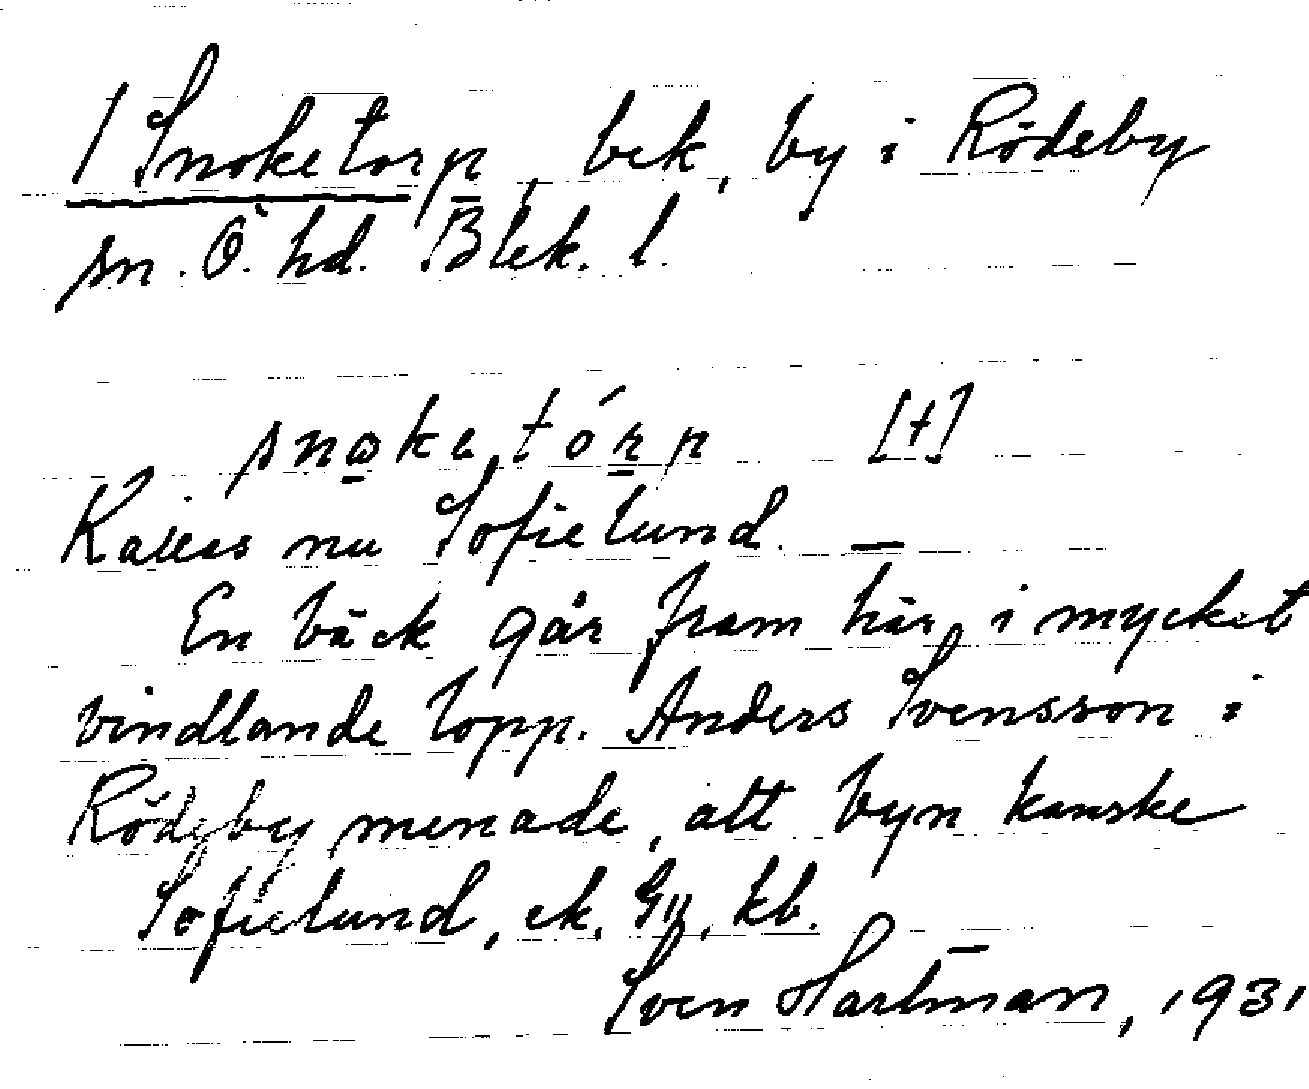 1 Snoketorp, bek, by i Rödeby
sn. Ö. hd. Blek. l.
snokatórp [+]
Kallas nu Sofielund. —
En bäck går fram här i mycket
vindlande lopp. Anders Svensson i
Rödeby menade, att byn kanske
Sofielund, ek. kb.
Sven Hartman, 1931